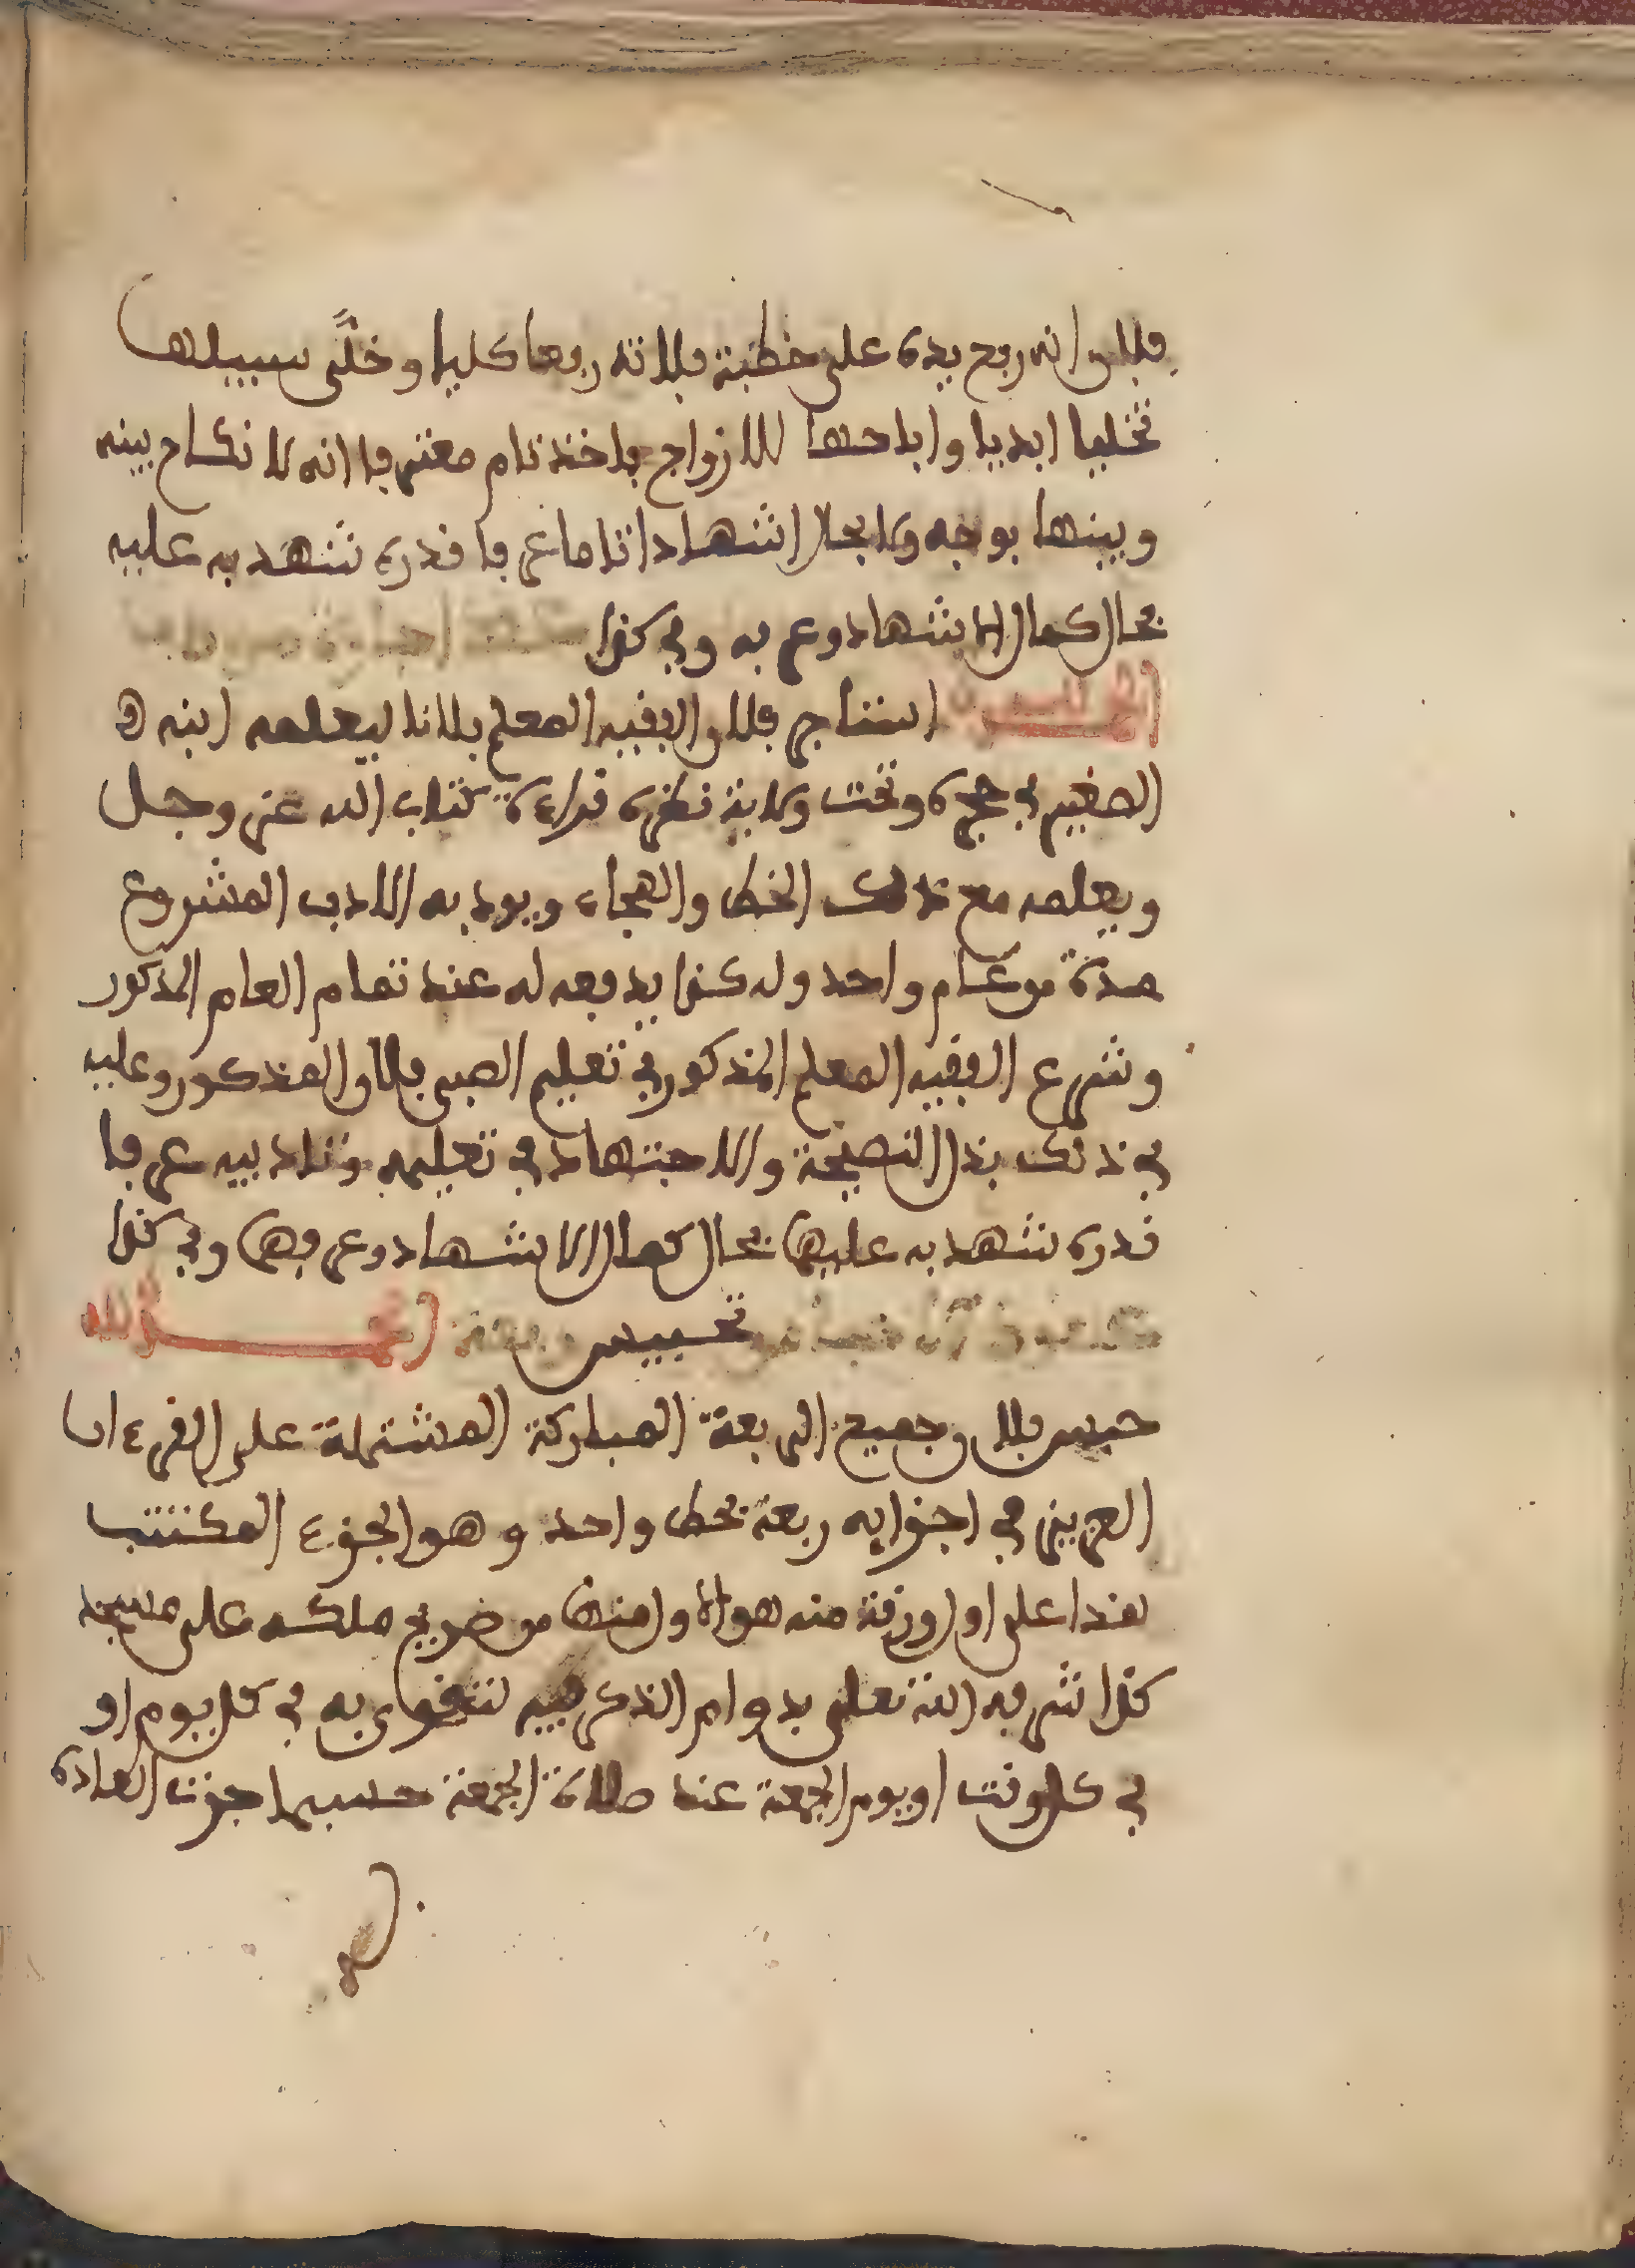 فلان انه رفع يده على خطبة فلانة رفعا كليا وخلَّى سبيلها
تخليا ابديا واباحها للازواج باخذ تام معترفا انه لا نكاح بينه
وبينها بوجه ولا بحال اشهادا تاما عرفا قدره شهد به عليه
بحال كمال الاشهاد وعرفه وفي كذا
الحمد لله استاجر فلان الفقيه المعلم فلانا ليعلمه ابنه
الصغير في حجره وتحت ولاية نظره قراءة كتاب الله عز وجل
ويعلمه مع ذلك الخط والهجاء ويودبه الادب المشروع
مدة من عام واحد وله كذا يدفعه له عند تمام العام المذكور
وشرع الفقيه المعلم المذكور في تعليم الصبي فلان المذكور وعليه
في ذلك بذل النصيحة والاجتهاد في تعليمه وتاديبه عرفا
قدره شهد به عليهما بحال كمال الاشهاد وعرفهما وفي كذا
تحبيس ربعة الحمد لله
حبس فلان جميع الربعة المباركة المشتملة على القرءان
العزيز في اجزايه ربعة بخط واحد وهو الجزء المكتتب
هذا على اول ورقة منه هو امنها من ضريح ملكه على مسجد
كذا شرفه الله تعلى بدوام الذكر فيه لتقرى به في كل يوم او
في كل وقت او يوم الجمعة عند صلاة الجمعة حسبما جرت العادة